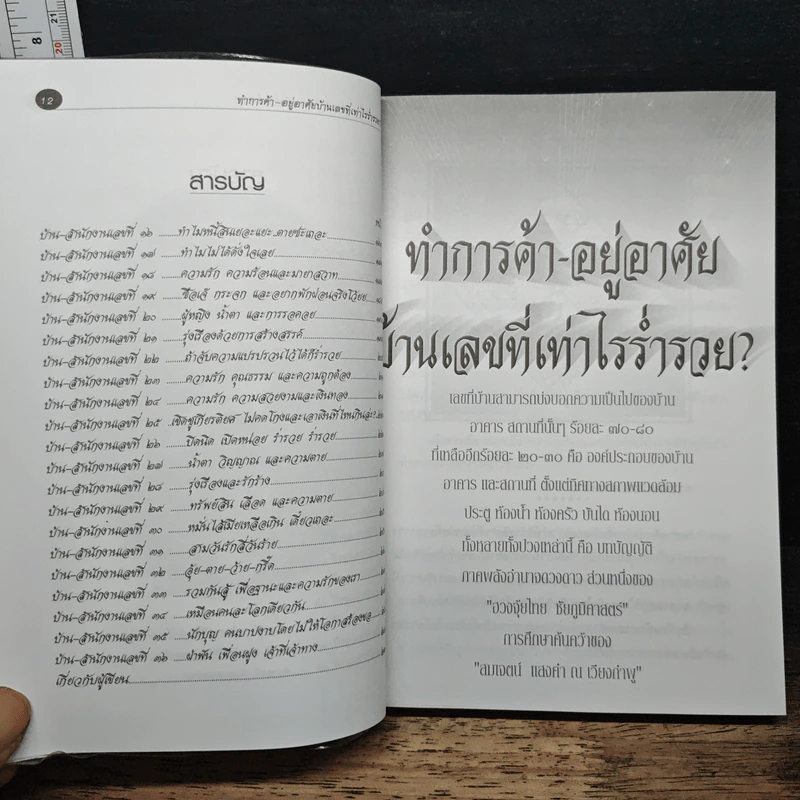 8
20
21
12
ทำการค้า-อยู่อาศัยบ้านเลขที่เท่าไรร่ำรวย
สารบัญ
บ้าน-สำนักงานเลขที่ ๑๖ ........ทำไมหนี้สินเยอะแยะ..ตายซะเถอะ
บ้าน-สำนักงานเลขที่ ๑๗ ........ทำไมไม่ได้ดั่งใจเลย
บ้าน-สำนักงานเลขที่ ๑๘ ........ความรัก ความร้อนและมายาสวาท
บ้าน-สำนักงานเลขที่ ๑๙ ........ซือเจ๊ กระจก และอยากพักผ่อนจริงโว้ย
บ้าน-สำนักงานเลขที่ ๒๐ ........ผู้หญิง น้ำตา และการรอคอย
บ้าน-สำนักงานเลขที่ ๒๑ ........รุ่งเรืองด้วยการสร้างสรรค์
บ้าน-สำนักงานเลขที่ ๒๒ ........ถ้าจับความแปรปรวนไว้ได้ก็ร่ำรวย
บ้าน-สำนักงานเลขที่ ๒๓ ........ความรัก คุณธรรม และความถูกต้อง
บ้าน-สำนักงานเลขที่ ๒๔ ........ความรัก ความสวยงามและเงินทอง
บ้าน-สำนักงานเลขที่ ๒๕ ......เชิดชูเกียรติยศ ไม่คดโกงและเอาเงินที่ไหนกินล่ะ?
บ้าน-สำนักงานเลขที่ ๒๖ ........ปิดนิด เปิดหน่อย ร่ำรวย ร่ำรวย
บ้าน-สำนักงานเลขที่ ๒๗ ........น้ำตา วิญญาณ และความตาย
บ้าน-สำนักงานเลขที่ ๒๘ ........รุ่งเรืองและรักร้าง
บ้าน-สำนักงานเลขที่ ๒๙ ........ทรัพย์สิน เลือด และความตาย
บ้าน-สำนักงานเลขที่ ๓๐ ........หมั่นไส้เมียเหลือเกิน เดี๋ยวเถอะ
บ้าน-สำนักงานเลขที่ ๓๑ ........สามวันรักสี่วันร้าย
บ้าน-สำนักงานเลขที่ ๓๒ ........อุ้ย-ตาย-ว้าย-กรี๊ด
บ้าน-สำนักงานเลขที่ ๓๓ ........รวมกันสู้ เพื่อฐานะและความรักของเรา
บ้าน-สำนักงานเลขที่ ๓๔ ........เหมือนคนละโลกเดียวกัน
บ้าน-สำนักงานเลขที่ ๓๕ ........นักบุญ คนบาปงาบโดยไม่ให้โอกาสร้องขอ
บ้าน-สำนักงานเลขที่ ๓๖ ........ฝ่าฟัน เพื่อนฝูง เจ้าที่เจ้าทาง
เกี่ยวกับผู้เขียน
ทำการค้า-อยู่อาศัย
บ้านเลขที่เท่าไรร่ำรวย?
เลขที่บ้านสามารถบ่งบอกความเป็นไปของบ้าน
อาคาร สถานที่นั้นๆ ร้อยละ ๗๐-๘๐
ที่เหลืออีกร้อยละ ๒๐-๓๐ คือ องค์ประกอบของบ้าน
อาคาร และสถานที่ ตั้งแต่ทิศทางสภาพแวดล้อม
ประตู ห้องน้ำ ห้องครัว บันได ห้องนอน
ทั้งหลายทั้งปวงเหล่านี้ คือ บทบัญญัติ
ภาคพลังอำนาจดวงดาว ส่วนหนึ่งของ
"ฮวงจุ้ยไทย ชัยภูมิศาสตร์"
การศึกษาค้นคว้าของ
"ลมเจตน์ แสงคำ ณ เวียงกำพู"